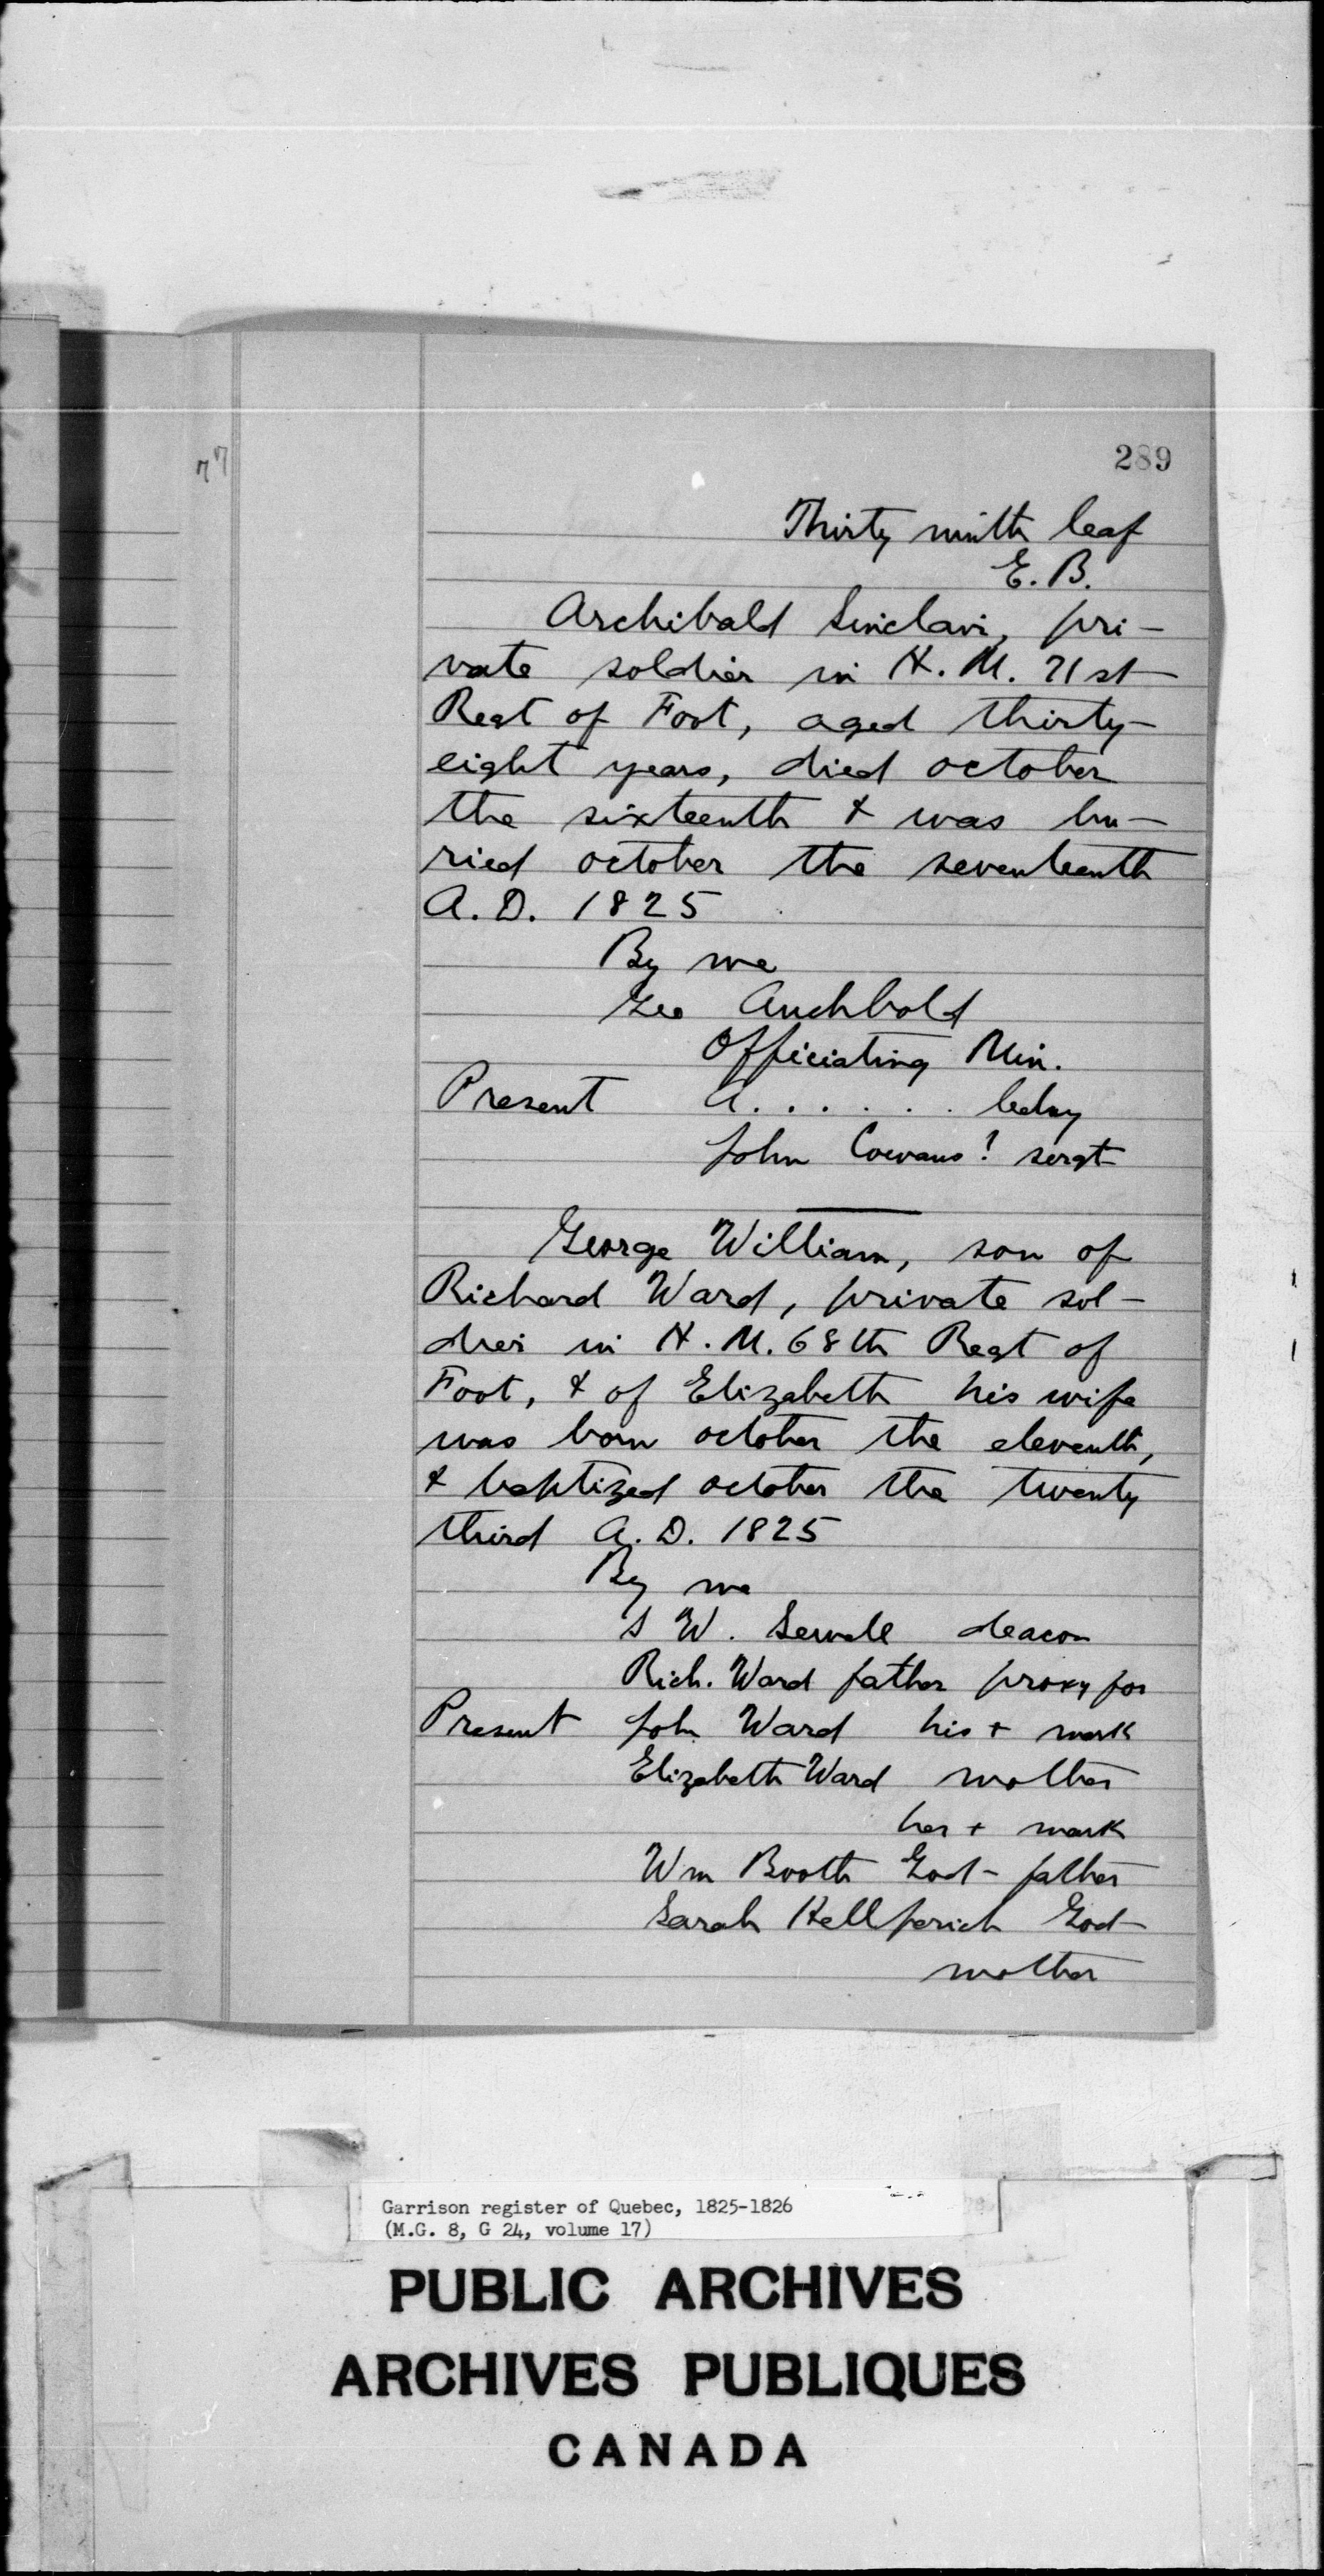 77
289
Thirty ninth leaf
E. B.
Archibald Sinclair, pri-
vate soldier in H. M. 71st
Regt of Foot, aged thirty-
eight years, died october
the sixteenth & was bu-
ried october the seventeenth
A. D. 1825
By me
Geo Archbold
Officiating Min.
Present A. . . . . . .
John Cowans! sergt
George William, son of
Richard Ward, private sol-
dier in H. M. 68th Regt of
Foot, & of Elizabeth his wife
was born october the eleventh,
& baptized october the twenty
third A. D. 1825
By me
S W. Sewell deacon
Rich. Ward father proxy for
Present John Ward his + mark
Elizabeth Ward mother
her + mark
Wm Booth God-father
Sarah Hellferich God-
mother
Garrison register of Quebec, 1825-1826
(M.G. 8, G 24, volume 17)
PUBLIC ARCHIVES
ARCHIVES PUBLIQUES
CANADA